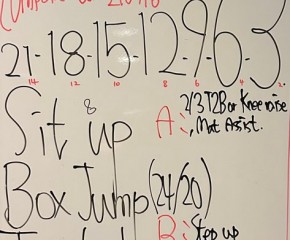 21-18-15-12-9-6-3
14 12 10 8 6 4 2
Sit up
8
A: 2/3 T2B or Knee raise
, Mat Assist.
Box Jump (24/20)
B: Step up